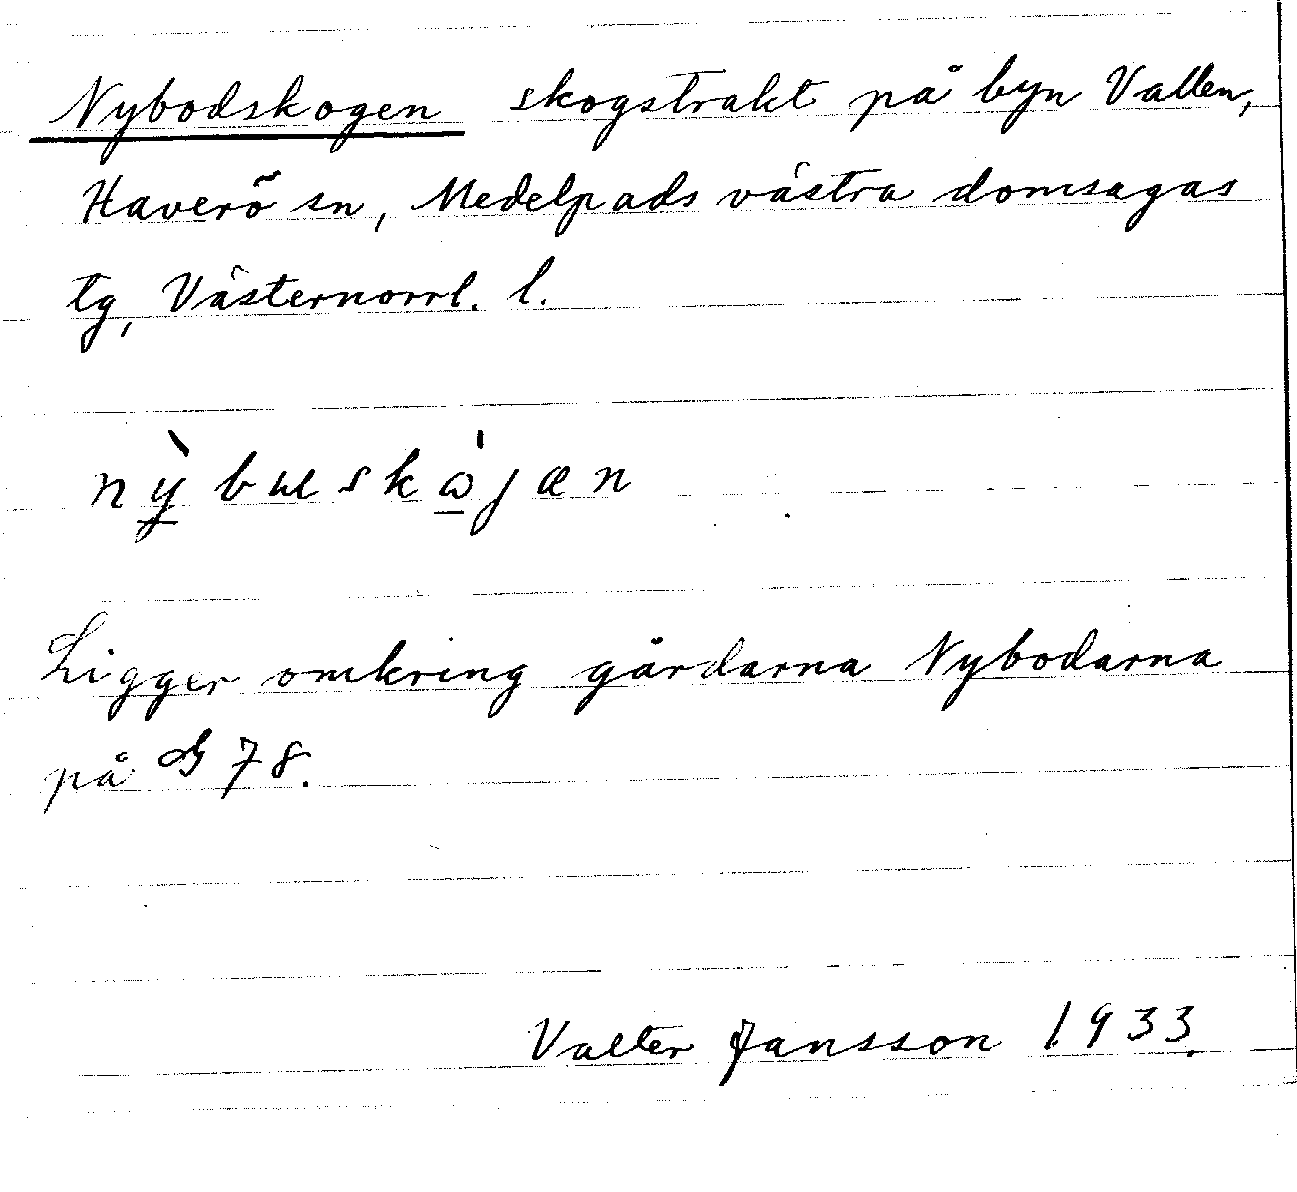 Nybodskogen skogstrakt på byn Vallen,
Haverö sn, Medelpads västra domsagas
tg, Västernorrl. l.
nỳbuskàjæn
Ligger omkring gårdarna Nybodarna
på G 78.
Valter Jansson 1933.